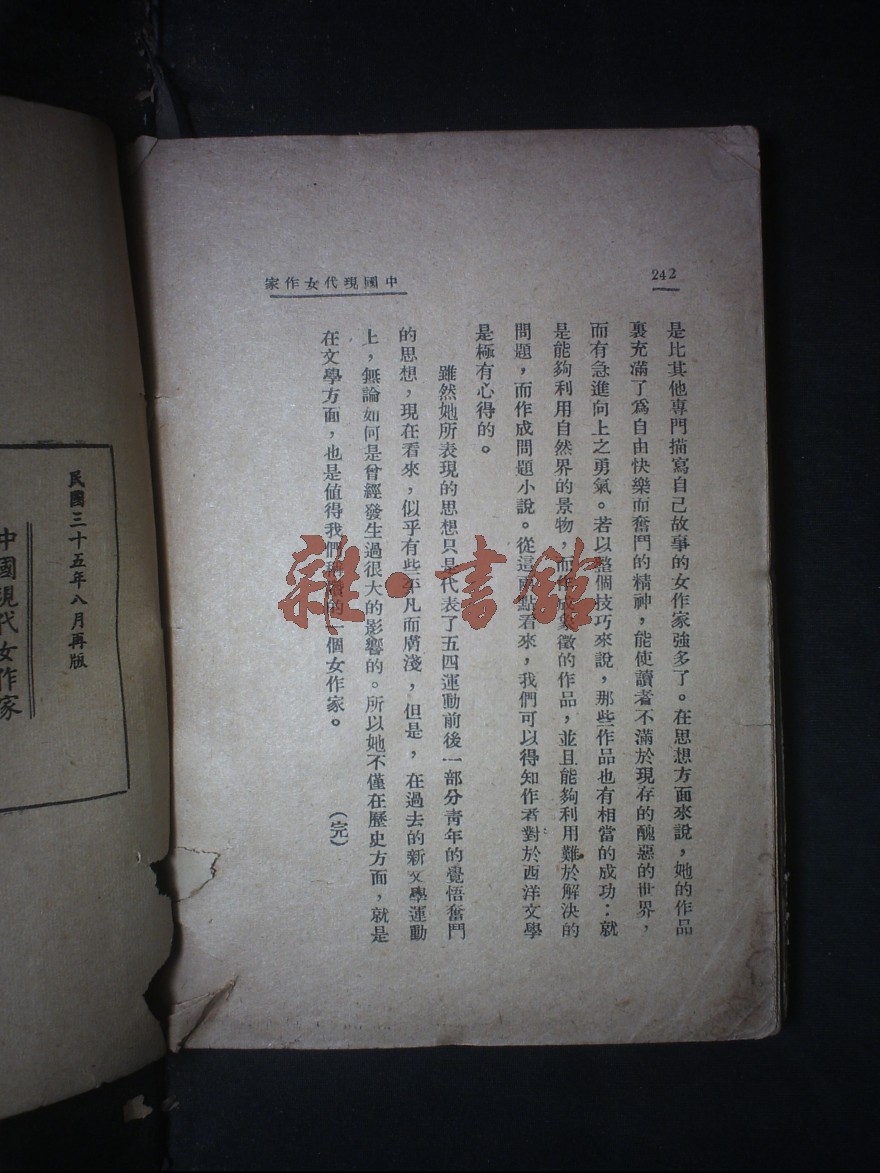 242
中國現代女作家
是比其他專門描寫自己故事的女作家強多了。在思想方面來說，她的作品
裏充滿了爲自由快樂而奮鬥的精神，能使讀者不滿於現存的醜惡的世界，
而有急進向上之勇氣。若以整個技巧來說，那些作品也有相當的成功：就
是能夠利用自然界的景物，而作成象徵的作品，並且能夠利用難於解決的
問題，而作成問題小說。從這兩點看來，我們可以得知作者對於西洋文學
是極有心得的。
雖然她所表現的思想只是代表了五四運動前後一部分靑年的覺悟奮鬥
的思想，現在看來，似乎有些平凡而膚淺，但是，在過去的新文學運動
上，無論如何是曾經發生過很大的影響的。所以她不僅在歷史方面，就是
在文學方面，也是值得我們的一個女作家。
（完）
雜·書館
民國三十五年八月再版
中國現代女作家